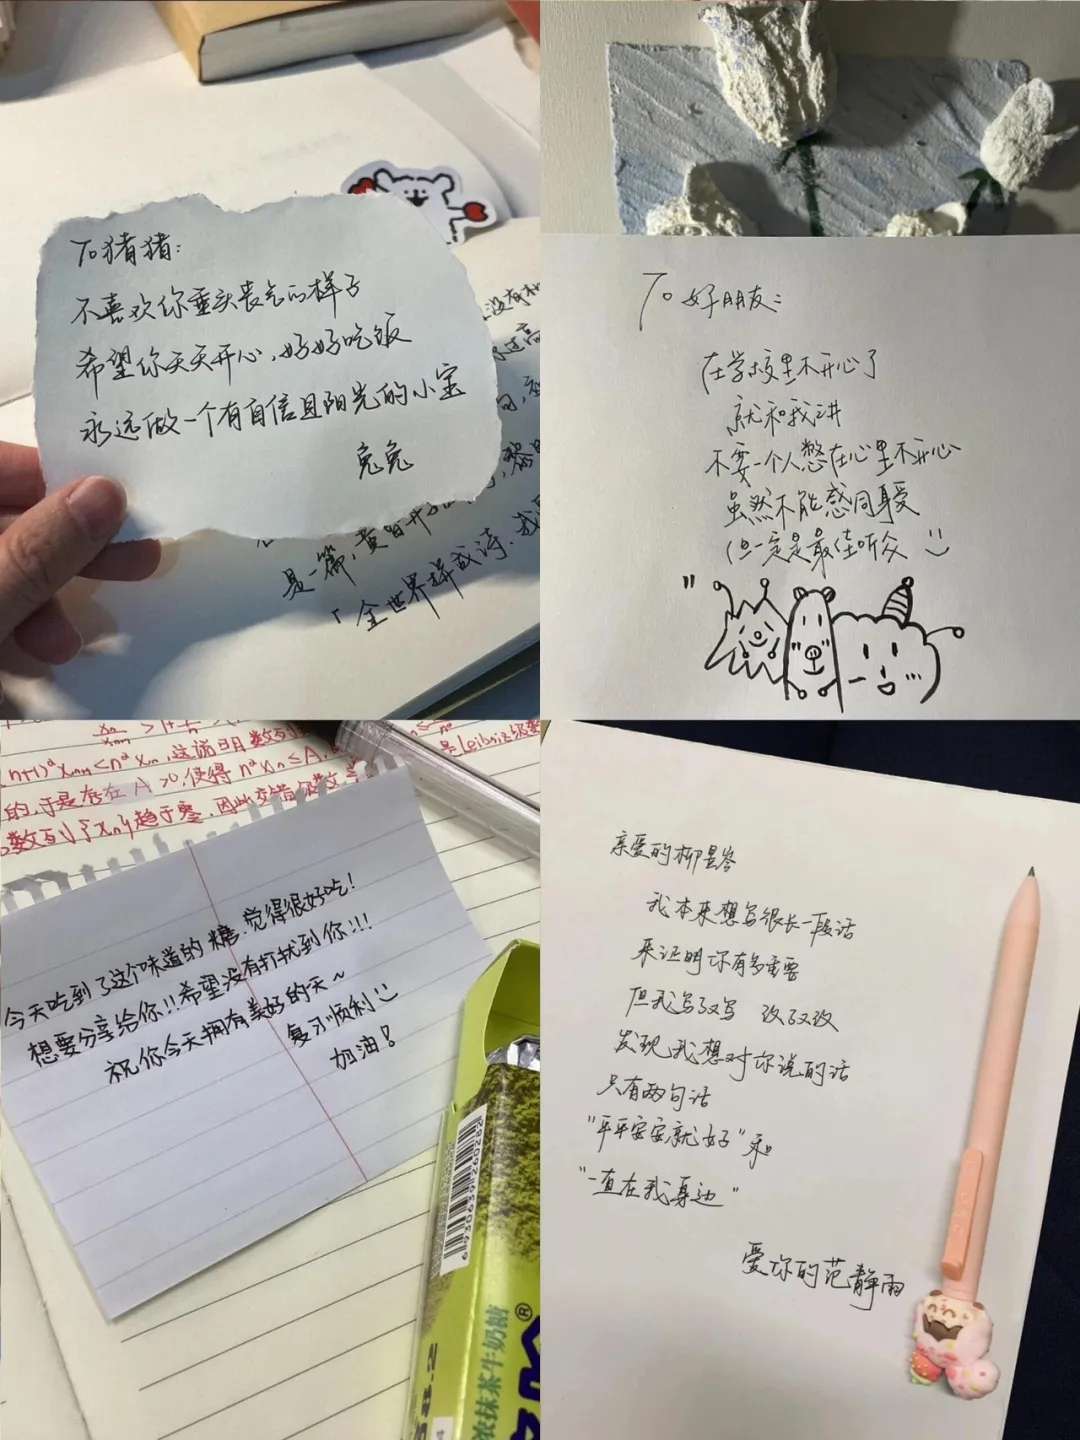 To 猪猪:
不喜欢你垂头丧气的样子
希望你天天开心,好好吃饭
永远做一个有自信且阳光的小宝
兔兔
没有
过高
是一篇,黄昏
「全世界拼成诗,我
To 好朋友:
在学校里不开心了
就和我讲
不要一个人憋在心里不开心
虽然不能感同身受
但一定是最佳听众
n+1)ᵅxₙ₊₁<nᵅxₙ,这说明数列
的,于是存在A>0,使得 nᵅxₙ≤A,
是Leibniz级数
数列{xₙ}趋于零,因此交错级数
今天吃到了这个味道的糖,觉得很好吃!
想要分享给你!!希望没有打扰到你!!!
祝你今天拥有美好的一天~
复习顺利
加油!
6930639260262
浓抹茶牛奶糖
®
亲爱的柳星岑
我本来想写很长一段话
来证明你有多重要
但我写了又写 改了又改
发现我想对你说的话
只有两句话
"平平安安就好"和
"一直在我身边"
爱你的范静雨